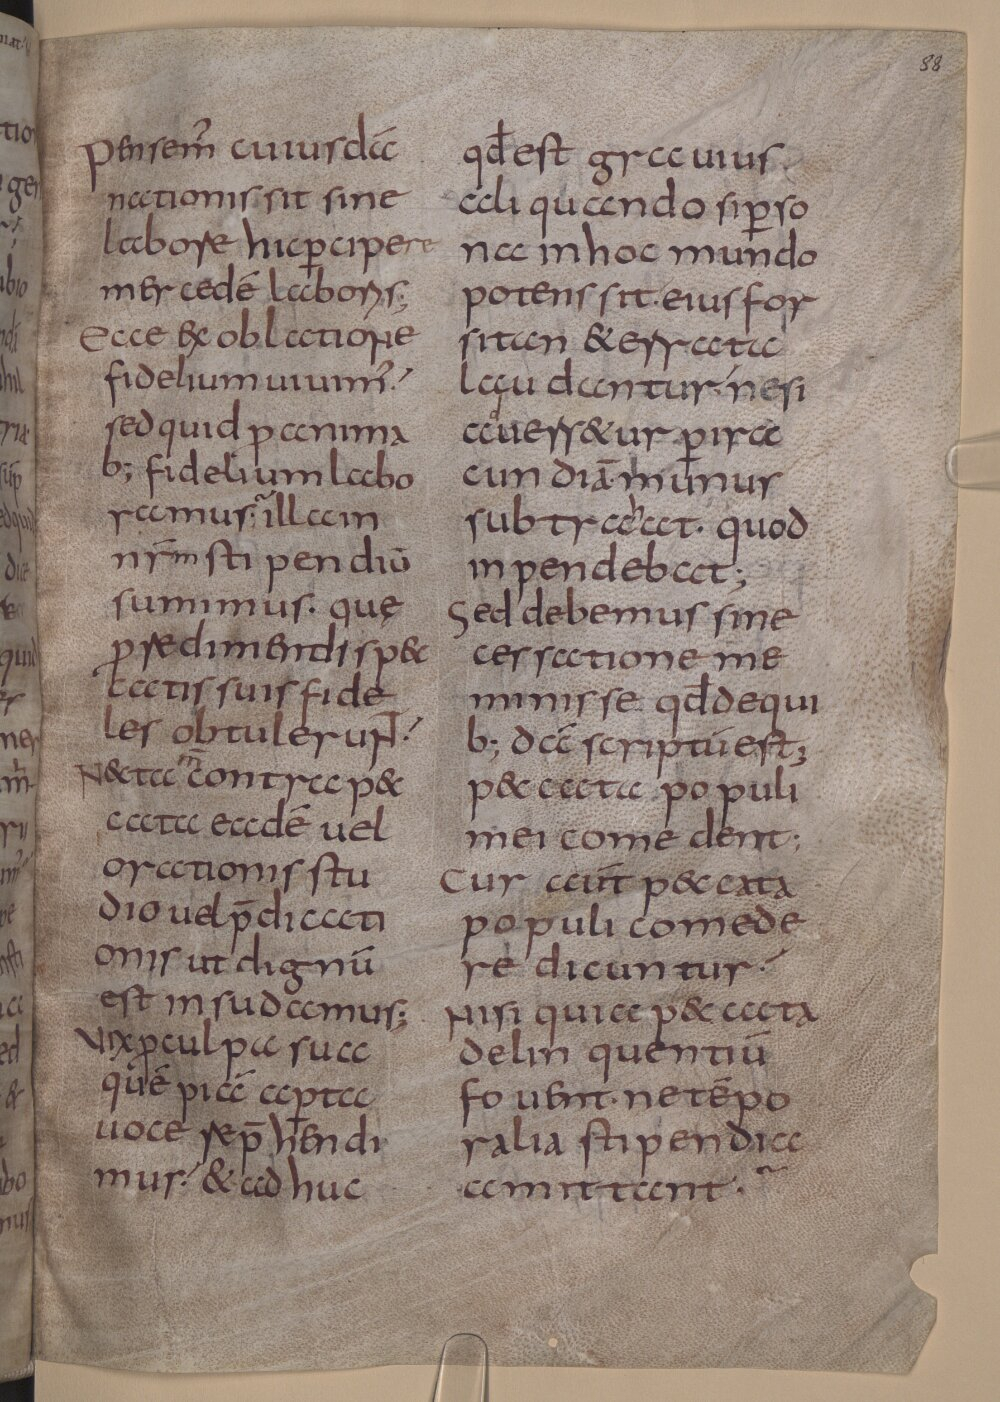 88
Pensem̄ cuius dā
nationis sit sine
labore hic ꝑcipere
mercedē laboris;
Ecce ex oblatione
fidelium uiuim̄;
sed quid ꝓ anima
b; fidelium labo
ramus; illa in
nr̄m stipendiū
sumimus. quę
ꝓ redimendis pec
catis suis fide
les obtulerunt;
Neta m̄ contra pec
cata eadē uel
orationis stu
dio uel p̄dicati
onis ut dignū
est insudamus;
Vix ꝓ culpa sua
quē piā aperta
uoce rep̄hendi
mus; & adhuc
qd̄ est grauius
aliquando si ꝑso
na in hoc mundo
potens sit. eius for
sitan & errata
laudantur; ne si
aduersetur ꝑ ira
cundiā munus
subtrahat. quod
inpendebat;
Sed debemus sine
cessatione me
minisse qd̄ de qui
b; dā scriptū est;
peccata populi
mei comedent;
Cur aut̄ peccata
populi comede
re dicuntur;
Nisi quia peccata
delinquentiū
fouent. ne tēpo
ralia stipendia
amittant.